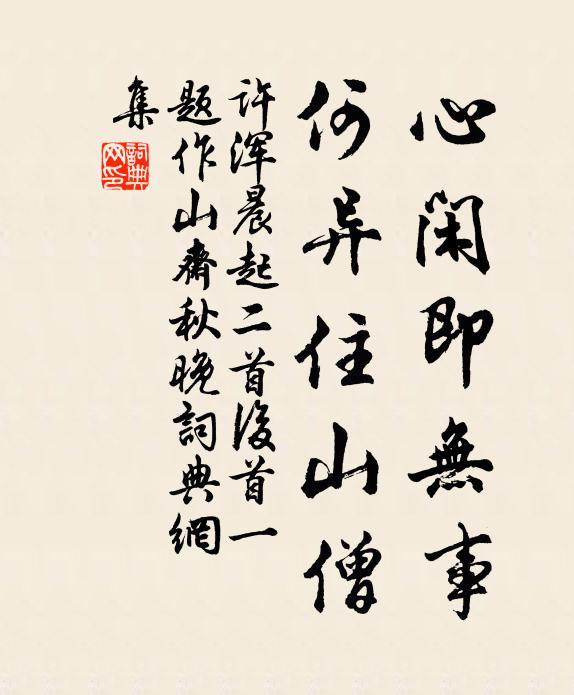 心闲即無事
何异住山僧
许浑晨起二首後首一
题作山齋秋晚詞典網
集
詞典
网印